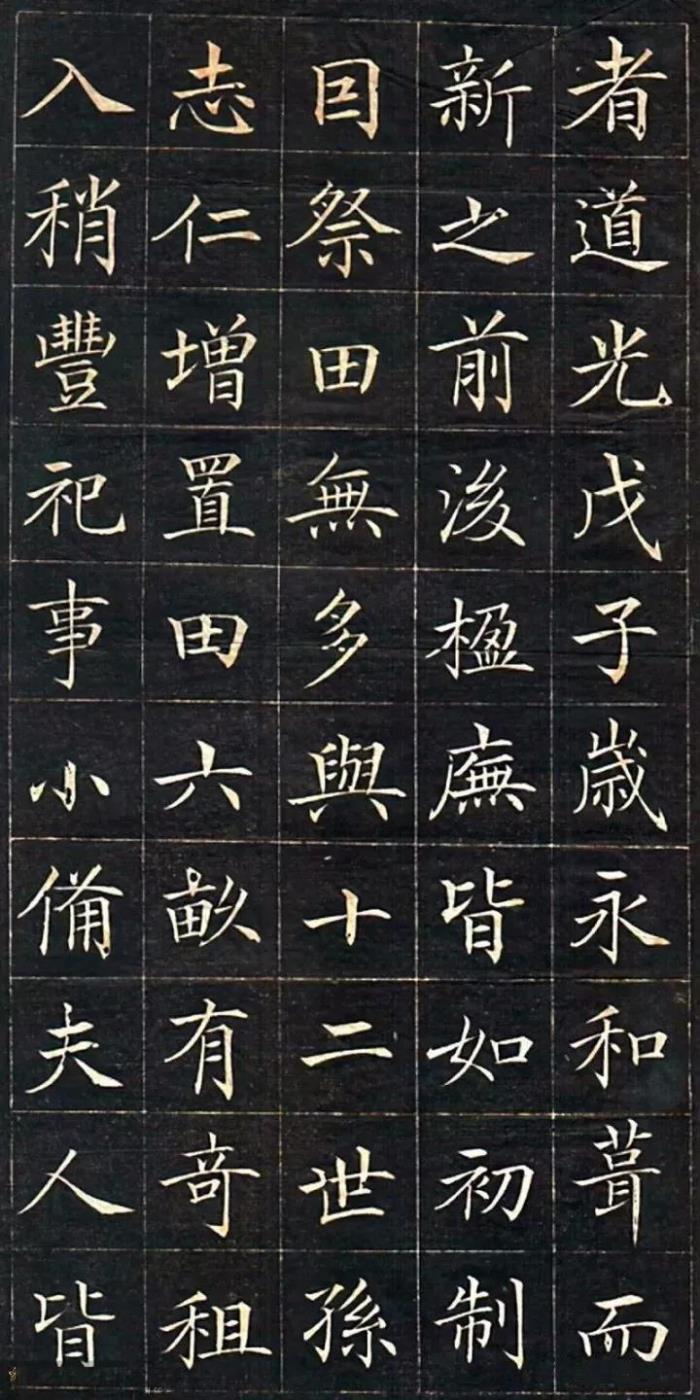 者道光戊子歲永和葺而
新之前後楹廡皆如初制
囙祭田無多與十二世孫
志仁增置田六畝有奇租
入稍豐祀事小備夫人皆